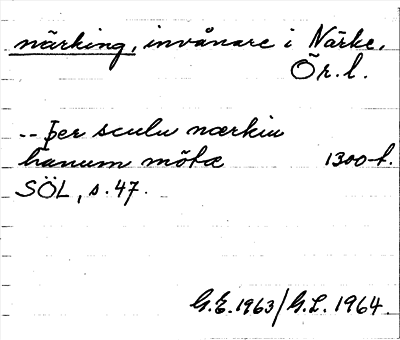 närking, invånare i Närke,
Ör. l.
-- þer sculu nærkiu
hanum möta 1300-t.
SÖL, s. 47.
G.E. 1963/G.L. 1964.